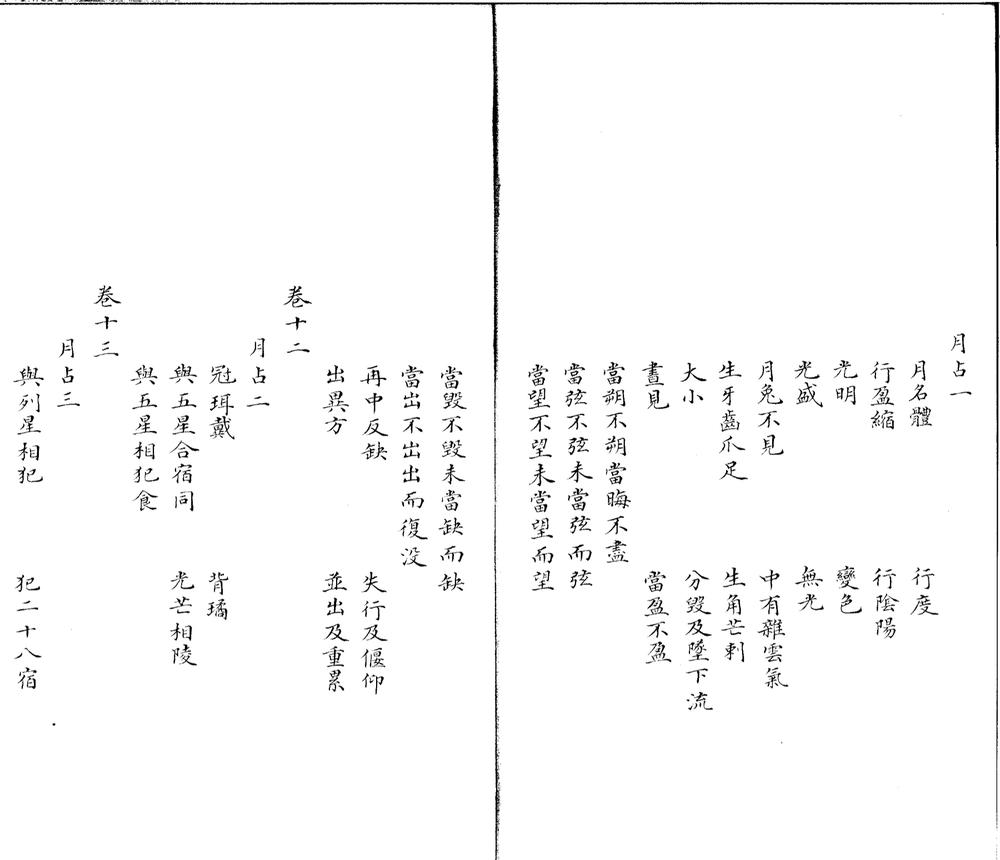 月占一
月名體　行度
行盈縮　行陰陽
光明　變色
光盛　無光
月兔不見　中有雜雲氣
生牙齒爪足　生角芒刺
大小　分毀及墜下流
晝見　當盈不盈
當朔不朔當晦不盡
當弦不弦未當弦而弦
當望不望未當望而望
當毀不毀未當缺而缺
當出不出出而復没
再中反缺　失行及偃仰
出異方　並出及重累
卷十二
月占二
冠珥戴　背璚
與五星合宿同　光芒相陵
與五星相犯食
卷十三
月占三
與列星相犯　犯二十八宿